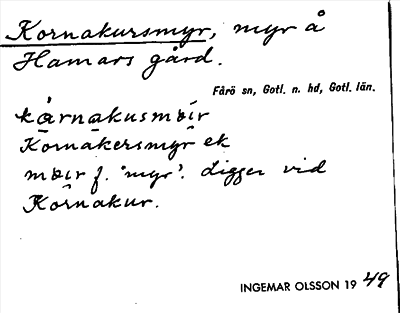 Kornakursmyr, myr å
Hamars gård.
Fårö sn, Gotl. n. hd, Gotl. län.
kårnakusmœir
Kornakersmyr ek
mœir f. "myr". Ligger vid
Kornakur.
INGEMAR OLSSON 19 49